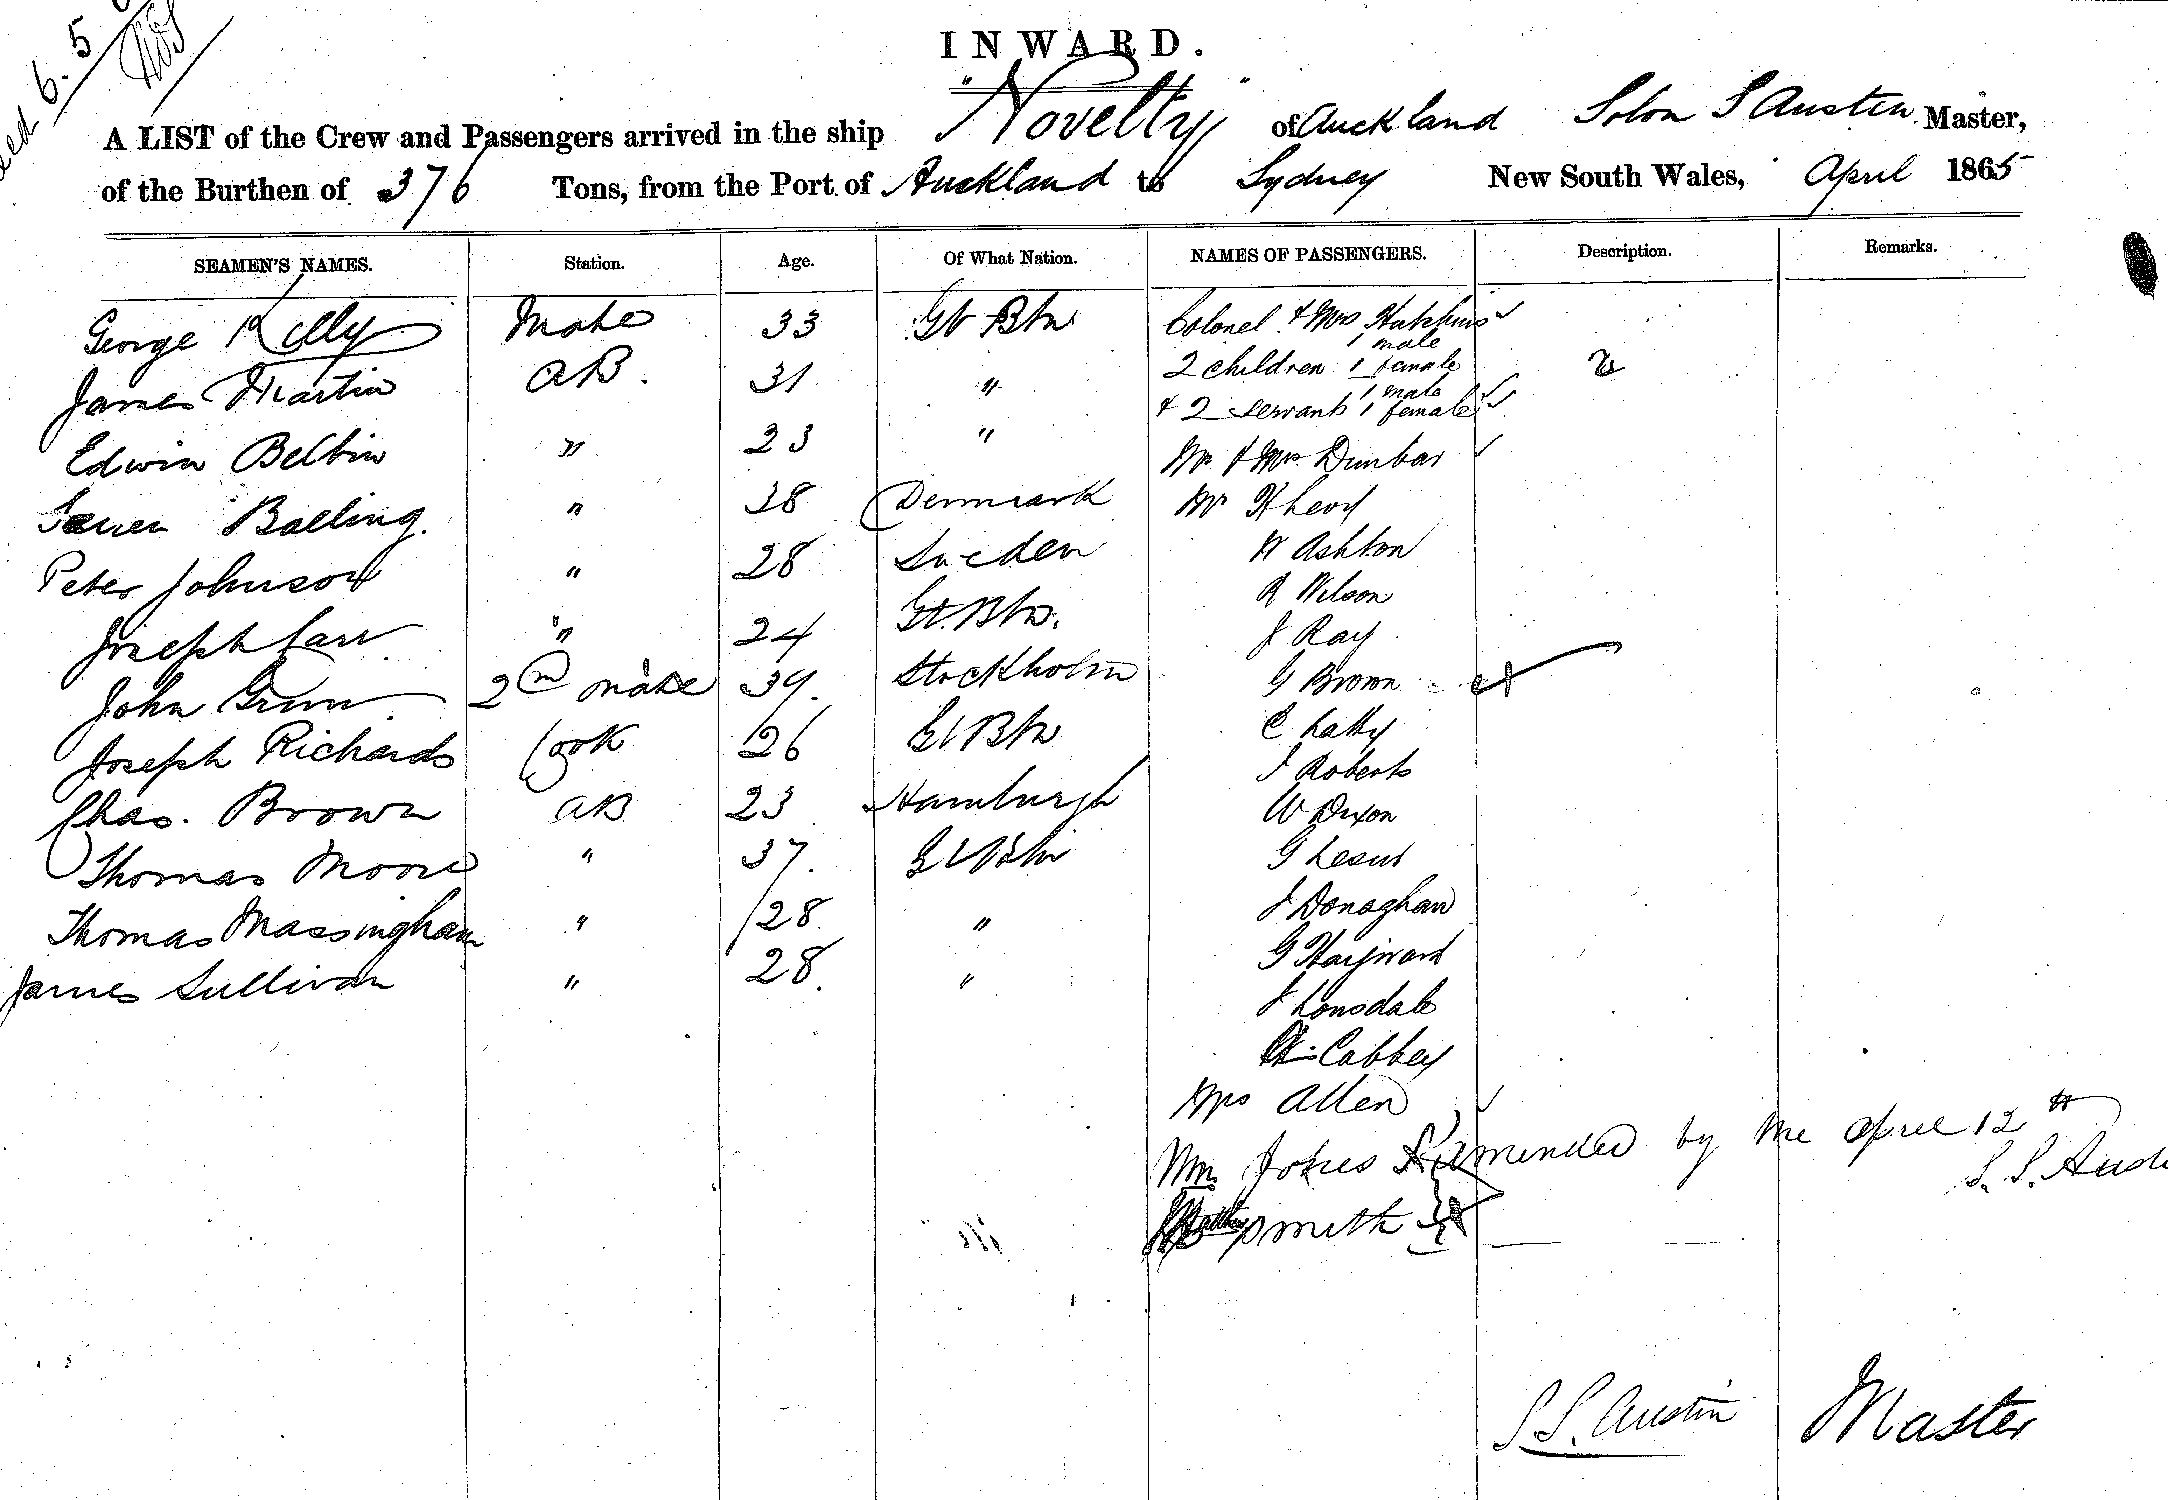 6.5
INWARD.
A LIST of the Crew and Passengers arrived in the ship "Novelty" of Auckland Solon S Austin Master,
of the Burthen of 376 Tons, from the Port of Auckland to Sydney New South Wales, April 1865
SEAMEN'S NAMES. Station. Age. Of What Nation. NAMES OF PASSENGERS. Description. Remarks.
George Kelly Mate 33 Gt Btn Colonel & Mrs Hutchins
1 male
James Martin AB. 31 " 2 children 1 female 2
1 male
& 2 servants 1 female
Edwin Belbin " 23 " Mr & Mrs Dunbar
Balling. " 38 Denmark Mr H Levy
Peter Johnson " 28 Sweden W Ashton
R Wilson
Joseph Carr " 24 Gt. Btn. J Ray
John Grunn 2nd mate 39. Stockholm G Brown
Joseph Richards Cook 26 Gt Btn C Latty
J Roberts
Chas. Brown AB 23 Hamburgh W Dixon
Thomas Moore " 37. Gt Btn G
Thomas Massingham " 28 " J Donaghan
G Hayward
James Sullivan " 28. " J Lonsdale
Cabbey
Mrs Allen
Wm Jones Amended by me April 12th
S. S. Aust
Smith
S S. Austin Master